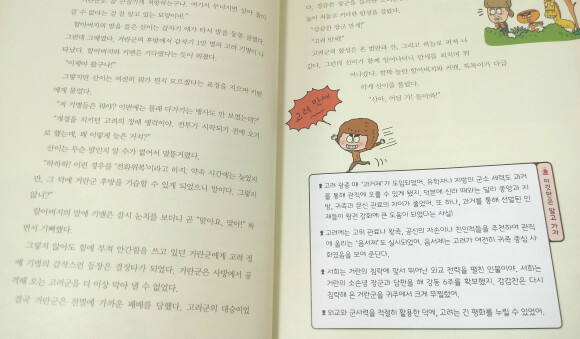 갈 수 없다는 걸 잘 알고 있는 모양이네."
그런데 그때였다. 거란군의 후방에서 갑자기 1만 명의 고려 기병이 나
타났다. 할아버지와 키캔은 기다렸다는 듯이 외쳤다.
"이제야 왔구나!"
그렇지만 산이는 여전히 뭐가 뭔지 모르겠다는 표정을 지으며 키캔
에게 물었다.
"저 기병들은 뭐야? 이번에는 몰래 다가가는 병사도 안 보였는데?"
"개경을 지키던 고려의 정예 병력이야. 전투가 시작되기 전에 오기
로 했는데, 왜 이렇게 늦은 거지?"
산이는 무슨 말인지 알 수가 없어서 멀뚱거렸다.
"하하하! 이런 경우를 '전화위복'이라고 하지. 약속 시간에는 늦었지
만, 그 덕에 거란군 후방을 기습할 수 있게 되었으니 말이다. 그렇지
않니?"
할아버지의 말에 키캔은 잠시 눈치를 보더니 곧 "맞아요, 맞아!" 하
면서 기뻐했다.
그렇지 않아도 힘에 부쳐 안간힘을 쓰고 있던 거란군에게 고려 정
예 기병의 갑작스런 등장은 결정타가 되었다. 거란군은 사방에서 공
격해 오는 고려군을 더 이상 막아 낼 수 없었다.
결국 거란군은 전멸에 가까운 패배를 당했다. 고려군의 대승이었
"강감찬 장군 만세!"
"고려 만세!"
고려군의 함성은 온 벌판과 산, 그리고 하늘로 퍼져 나
갔다. 그런데 산이가 함께 일어나더니 만세를 외치며 뛰
어나갔다. 깜짝 놀란 할아버지와 키캔, 똑똑이가 다급
하게 산이를 불렀다.
"산아, 어딜 가! 돌아와!"
고려 만세
이것만은 알고 가자
고려 광종 때 '과거제'가 도입되었어. 유학자나 지방의 군소 세력도 과거
를 통해 관직에 오를 수 있게 됐지. 덕분에 신라 때와는 달리 중앙과 지
방, 귀족과 문신 관료의 차이가 줄었어. 또 하나, 과거를 통해 선발된 인
재들이 왕권 강화에 큰 도움이 되었다는 사실!
고려에는 고위 관료나 왕족, 공신의 자손이나 친인척들을 추천하여 관직
에 올리는 '음서제'도 실시되었어. 음서제는 고려가 여전히 귀족 중심 사
회였음을 보여 준단다.
서희는 거란의 침략에 맞서 뛰어난 외교 전략을 펼친 인물이야. 서희는
거란의 소손녕 장군과 담판을 해 강동 6주를 확보했지. 강감찬은 다시
침략해 온 거란군을 귀주에서 크게 무찔렀어.
외교와 군사력을 적절히 활용한 덕에, 고려는 긴 평화를 누릴 수 있었어.